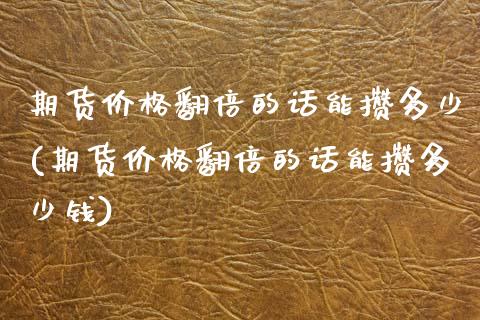 期货价格翻倍的话能攒多少
(期货价格翻倍的话能攒多
少钱)